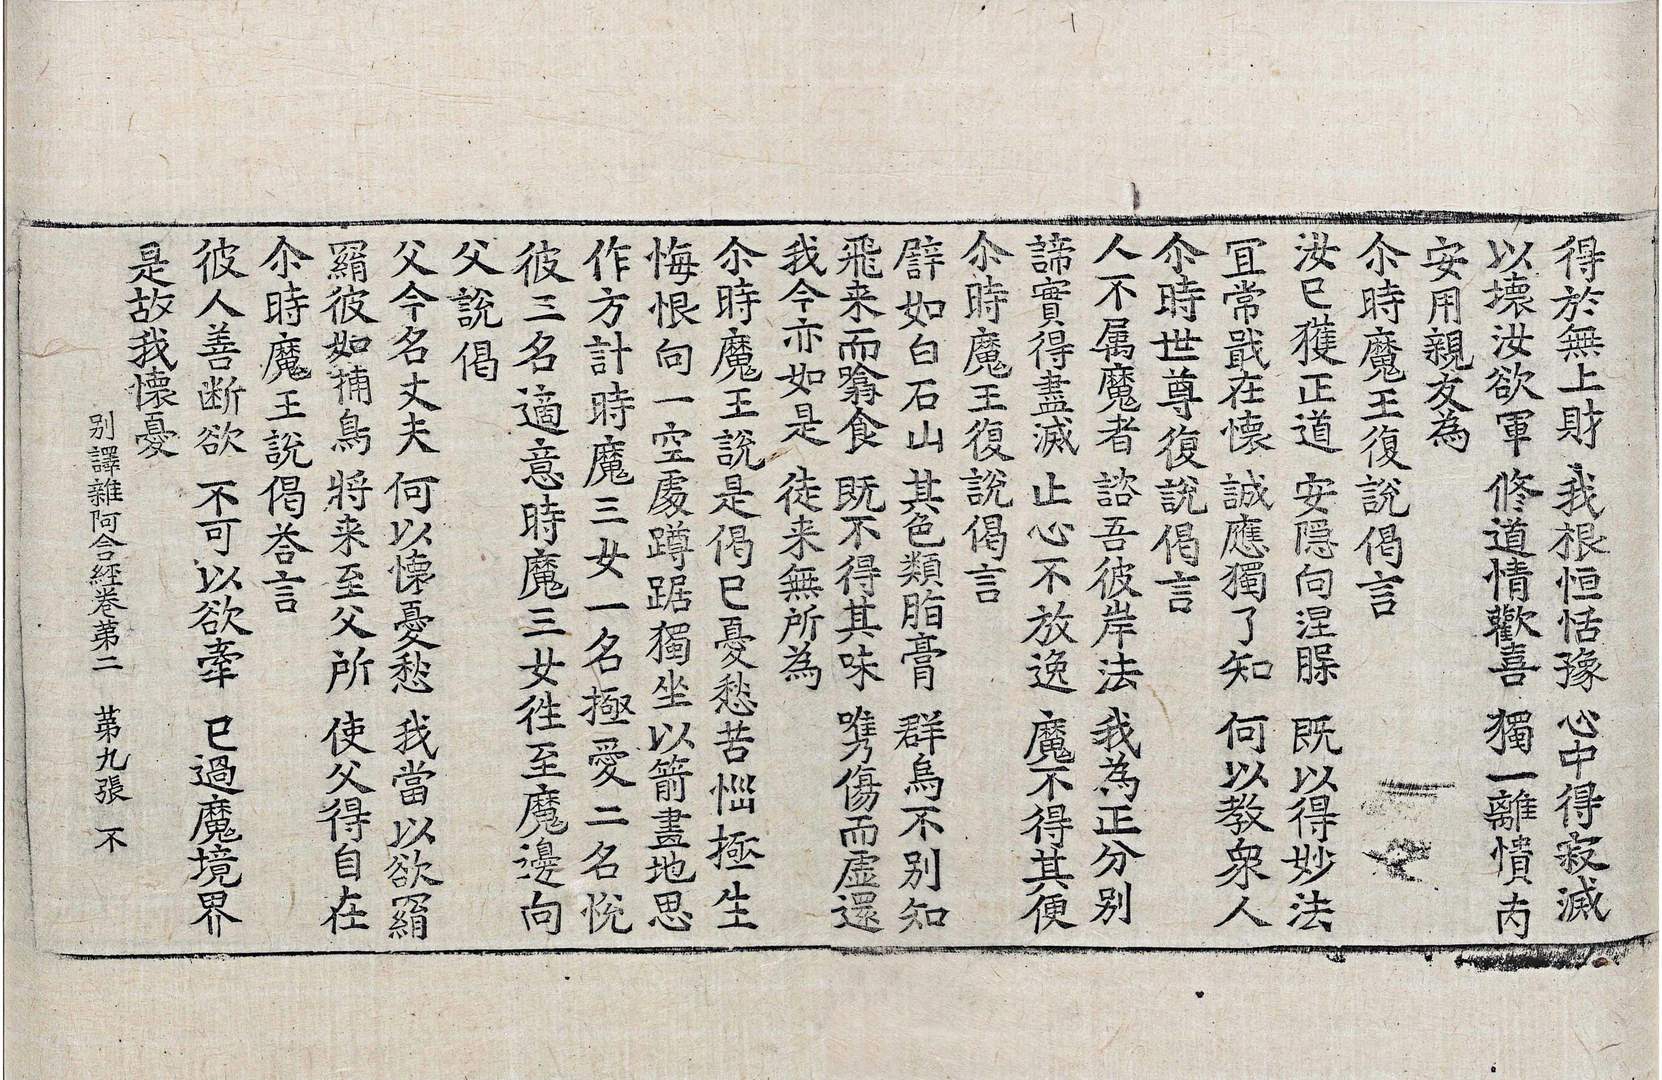 得於無上財　我根恒恬豫　心中得寂滅
以壞汝欲軍　修道情歡喜　獨一離憒丙
安用親友為
尒時魔王復說偈言
汝已獲正道　安隱向涅脲　既以得妙法
冝常戢在懷　誠應獨了知　何以教衆人
尒時世尊復說偈言
人不属魔者　諮吾彼岸法　我為正分別
諦實得盡滅　止心不放逸　魔不得其便
尒時魔王復說偈言
譬如白石山　其色類脂膏　群鳥不別知
飛来而噏食　既不得其味　㗲傷而虛還
我今亦如是　徒来無所為
尒時魔王說是偈已憂愁苦惱極生
悔恨向一空處蹲踞獨坐以箭畫地思
作方計時魔三女一名極愛二名悅
彼三名適意時魔三女徃至魔邊向
父說偈
父今名丈夫　何以懷憂愁　我當以欲羂
羂彼如捕鳥　將来至父所　使父得自在
尒時魔王說偈荅言
彼人善断欲　不可以欲牽　已過魔境界
是故我懷憂
別譯雜阿含經卷苐二　苐九張　不